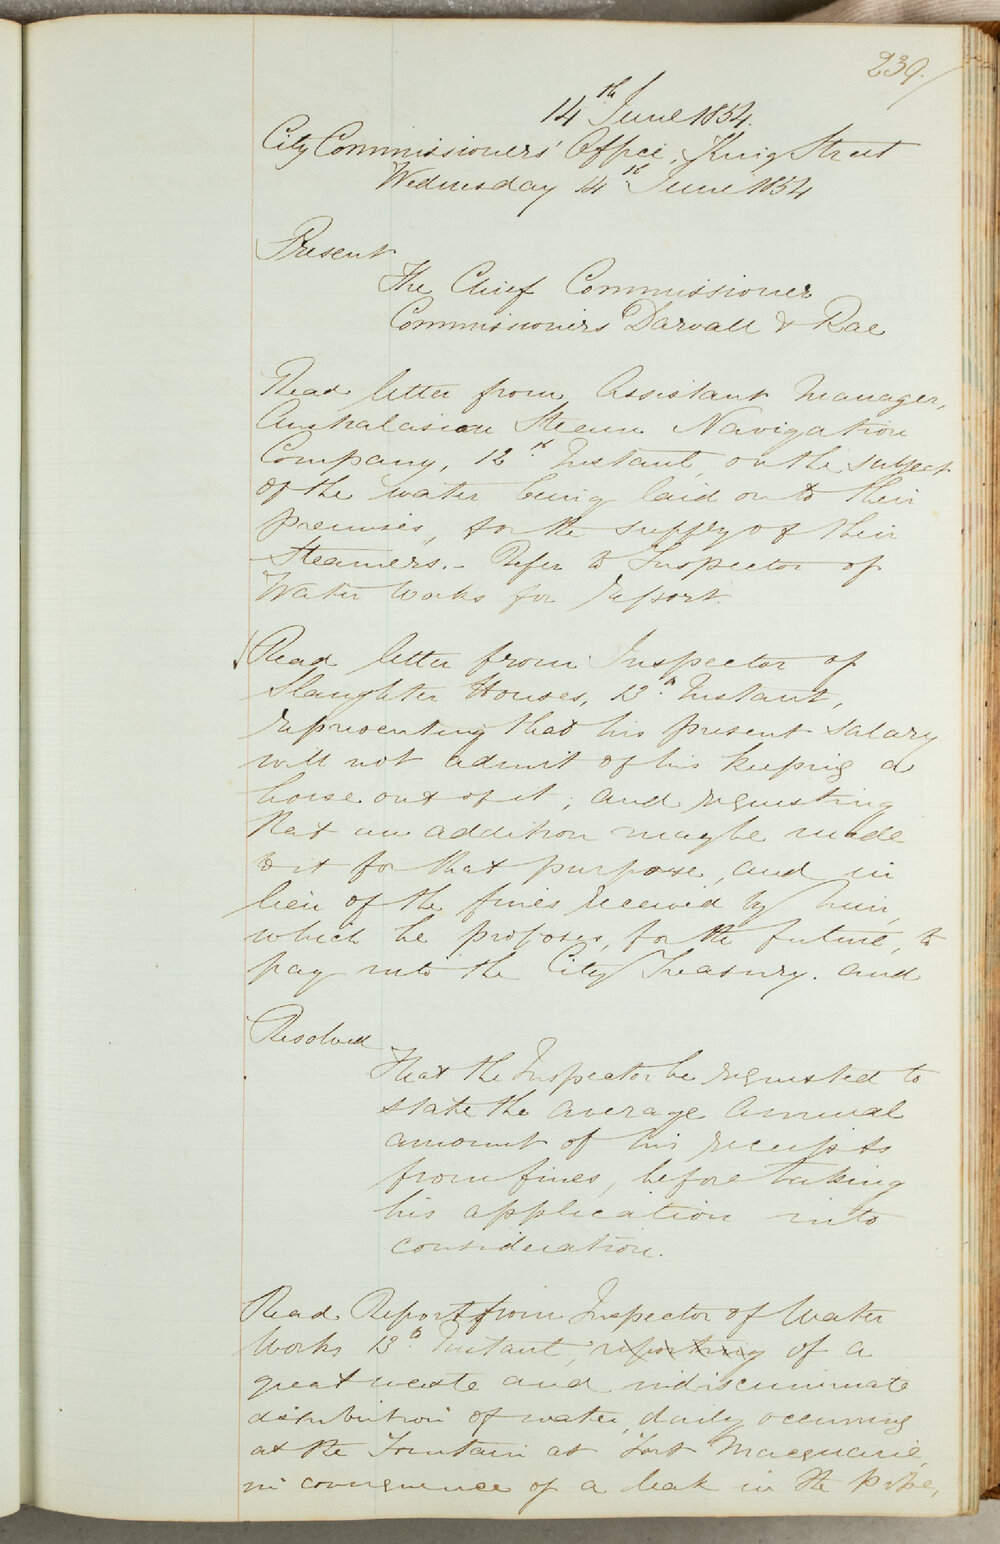 239.
14th June 1854.
City Commissioners' Office, King Street
Wednesday 14th June 1854
Present
The Chief Commissioner
Commissioners Darvall & Rae
Read letter from Assistant Manager,
Australasian Steam Navigation
Company, 12th Instant, on the subject
of the water being laid on to their
premises, for the supply of their
Steamers. - Refer to Inspector of
Water Works for report.
Read letter from Inspector of
Slaughter Houses, 13th Instant,
representing that his present salary
will not admit of his keeping a
horse out of it; and requesting
that an addition may be made
to it for that purpose, and in
lieu of the fines received by him,
which he proposes, for the future, to
pay into the City Treasury. and
Resolved
That the Inspector be requested to
state the average annual
amount of his receipts
from fines, before taking
his application into
consideration.
Read Report from Inspector of Water
Works 13th Instant, reporting of a
great waste and indiscriminate
distribution of water, daily occurring
at the Fountain at Fort Macquarie,
in consequence of a leak in the pipe,